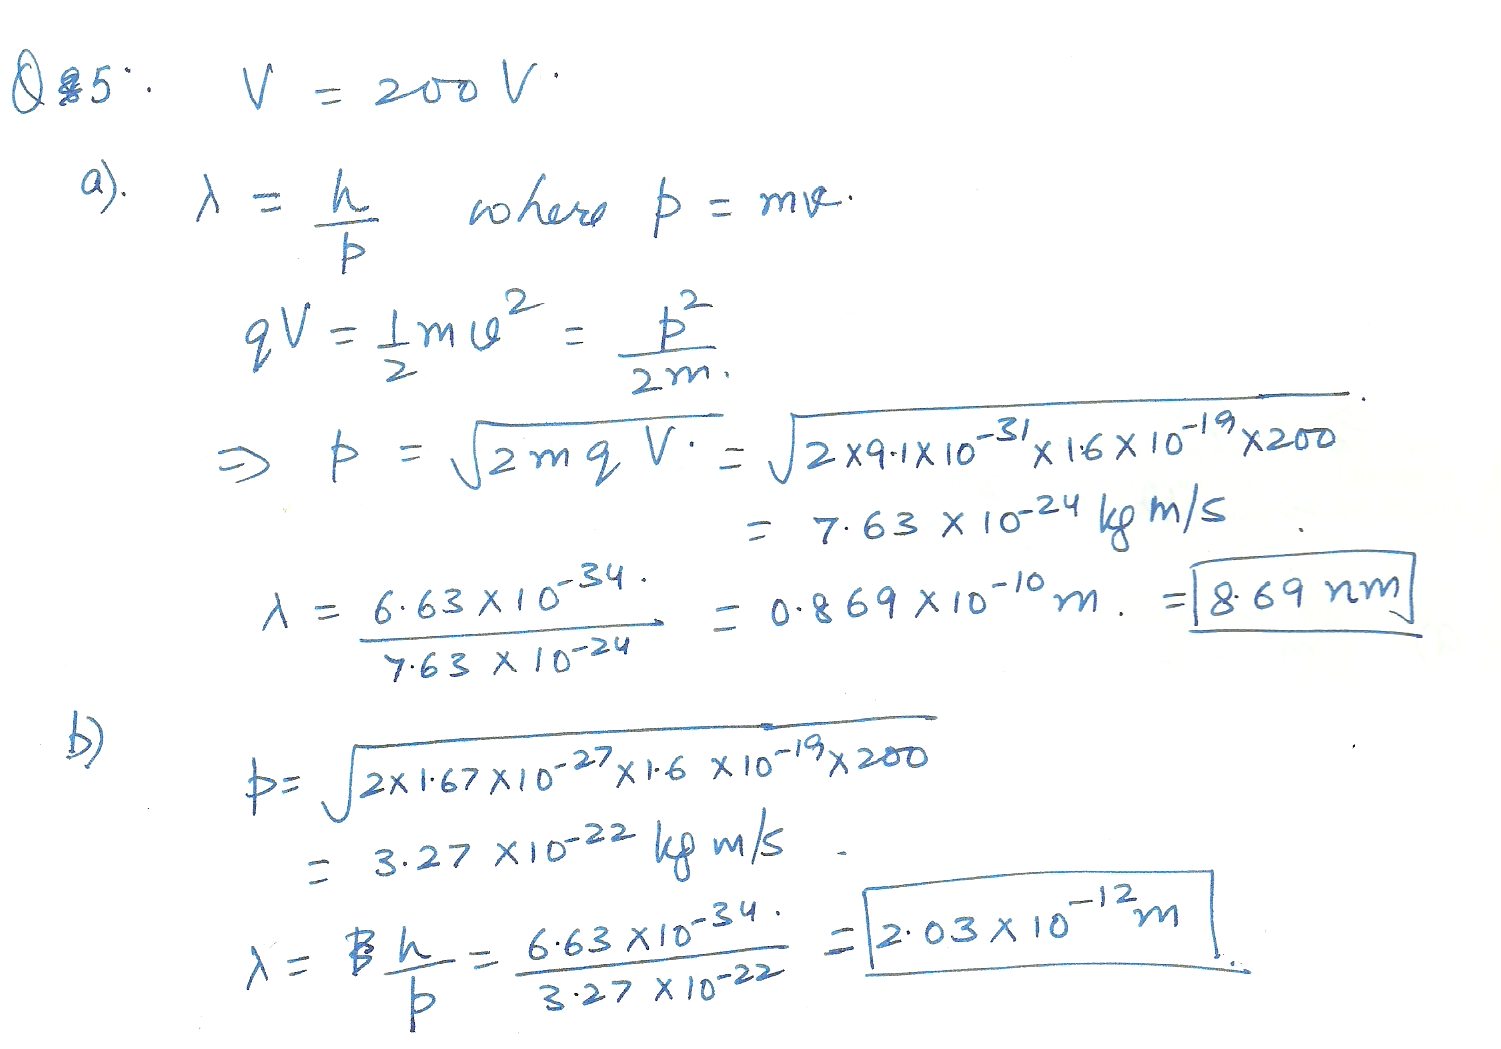 Q 5:. V = 200 V.
a). λ = h/p where p = mv.
qV = 1/2 mv² = p²/2m.
⇒ p = √(2mqV) = √(2×9.1×10⁻³¹×1.6×10⁻¹⁹×200)
= 7.63 × 10⁻²⁴ kg m/s
λ = 6.63×10⁻³⁴/7.63×10⁻²⁴ = 0.869×10⁻¹⁰ m. = 8.69 nm
b)
p = √(2×1.67×10⁻²⁷×1.6×10⁻¹⁹×200)
= 3.27 ×10⁻²² kg m/s
λ = h/p = 6.63×10⁻³⁴/3.27×10⁻²² = 2.03×10⁻¹² m